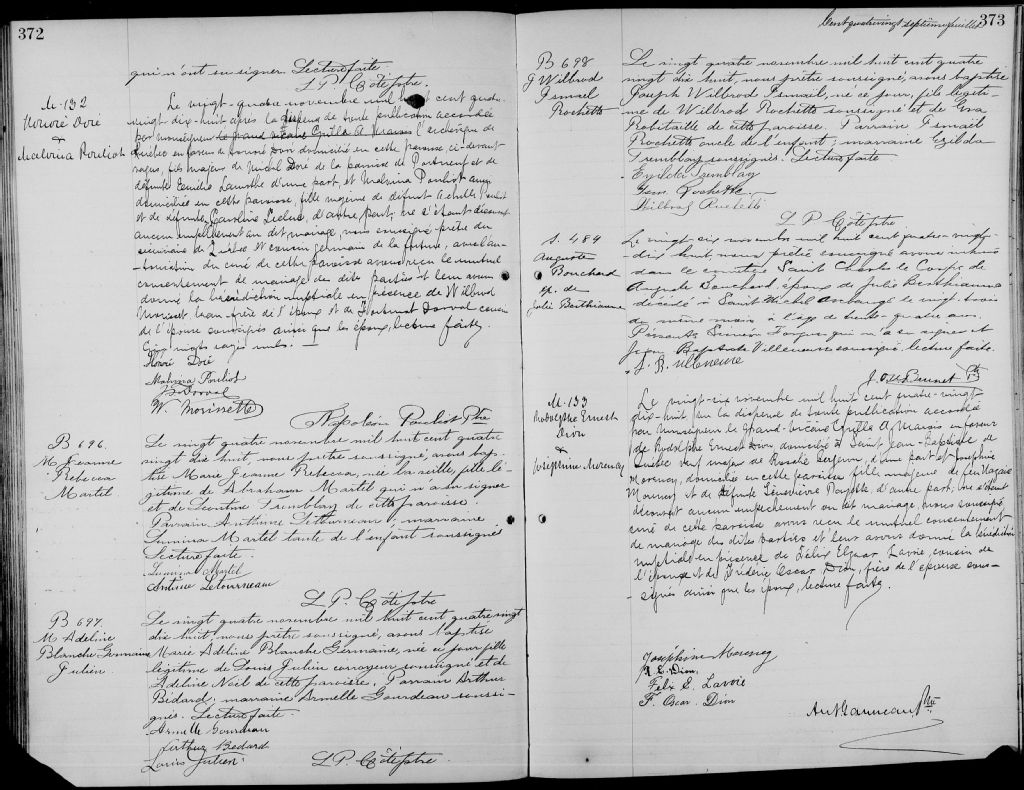 372
qui n'ont su signer. Lecture faite.
L P. Côté ptre.
M. 132
Honoré Doré
&
Malvina Pouliot
Le vingt-quatre novembre mil huit cent quatre-
vingt-dix-huit après la dispense de toute publication accordée
par Monseigneur le grand vicaire Cyrille A Marois l'archevêque de
Québec en faveur de Honoré Doré domicilié en cette paroisse ci-devant
fils majeur de Michel Doré de la paroisse de Portneuf et de
défunte d'une part, et Malvina Pouliot aussi
domiciliée en cette paroisse, fille mineure de défunt Achille Pouliot
et de défunte Caroline Leclerc, d'autre part; ne s'étant découvert
aucun empêchement au dit mariage, nous soussigné prêtre du
séminaire de Québec et cousin germain de la future, avec l'au-
torisation du curé de cette paroisse avons reçu le mutuel
consentement de mariage des dites parties et leur avons
donné la bénédiction nuptiale en présence de Wilbrod
Morissette beau-frère de l'époux et de Dorval cousin
de l'épouse soussignés ainsi que les époux, lecture faite.
mots rayés nuls.
Honoré Doré
Malvina Pouliot
Dorval
W. Morissette
Napoléon Pouliot Ptre
B 696.
M. Jeanne
Rebecca
Martel
Le vingt quatre novembre mil huit cent quatre
vingt dix huit, nous prêtre soussigné, avons bap-
tisé Marie Jeanne Rebecca, née la veille, fille lé-
gitime de Abraham Martel qui n'a su signer
et de Léontine Tremblay de cette paroisse.
Parrain Anthime Létourneau; marraine
Lumina Martel tante de l'enfant soussignés
Lecture faite.
Lumina Martel
Antime Letourneau
L P. Côté ptre
B 697.
M. Adeline
Blanche Germaine
Julien.
Le vingt quatre novembre mil huit cent quatre vingt
dix huit, nous prêtre soussigné, avons baptisé
Marie Adeline Blanche Germaine, née ce jour fille
légitime de Louis Julien corroyeur soussigné et de
Adeline Noël de cette paroisse. Parrain Arthur
Bédard; marraine Armelle Gourdeau soussi-
gnés. Lecture faite.
Armelle Gourdeau
Arthur Bedard
Louis Julien
L P. Côté ptre.
Cent quatrevingt septième feuillet
373
B 698
J Wilbrod
Ismael
Rochette
Le vingt quatre novembre mil huit cent quatre
vingt dix huit, nous prêtre soussigné, avons baptisé
Joseph Wilbrod Ismaël, né ce jour, fils légiti-
me de Wilbrod Rochette soussigné et de Eva
Robitaille de cette paroisse. Parrain Ismaël
Rochette oncle de l'enfant; marraine Exilda
Tremblay soussignés. Lecture faite
Exilda Tremblay
Ism. Rochette
Wilbrod Rochette
L P. Côté ptre
S. 484
Auguste
Bouchard
ép. de
Julie Berthiaume
Le vingt-six novembre mil huit cent quatre-vingt-
dix huit, nous prêtre soussigné avons inhumé
dans le cimetière Saint Charles le corps de
Auguste Bouchard, époux de Julie Berthiaume
décédé à Saint Michel Archange le vingt trois
du même mois à l'âge de trente-quatre ans.
Présents Siméon qui n'a su signer et
Jean Baptiste Villeneuve soussigné lecture faite.
J. B. villeneuve
Brunet Ptr
M. 133
Rodolphe Ernest
Dion
&
Josephine Morency
Le vingt-six novembre mil huit cent quatre-vingt-
dix-huit vu la dispense de toute publication accordée
par Monseigneur le grand-vicaire Cyrille A Marois en faveur
de Rodolphe Ernest Dion domicilié à Saint Jean-Baptiste de
Québec veuf majeur de Rosalie Bergeron, d'une part et Joséphine
Morency, domiciliée en cette paroisse, fille majeure de feu Nazaire
Morency et de défunte Geneviève d'autre part, ne s'étant
découvert aucun empêchement au dit mariage, nous soussigné
curé de cette paroisse avons reçu le mutuel consentement
de mariage des dites parties et leur avons donné la bénédiction
nuptiale en présence de Félix Elzéar Lavoie, cousin de
l'épouse et de Frédéric Oscar Dion, frère de l'épouse sous-
signés ainsi que les époux, lecture faite.
Joséphine Morency
R. E. Dion,
Félix E. Lavoie
F. Oscar. Dion
Ant Gauvreau Ptre